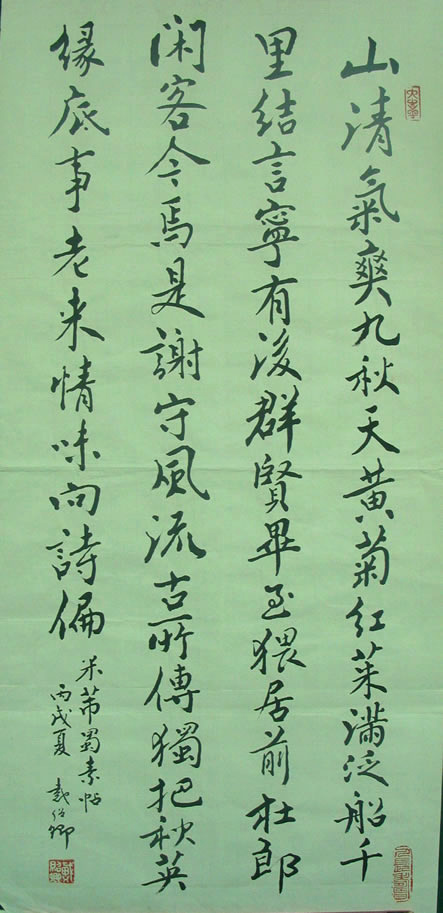 山清氣爽九秋天黃菊紅茱滿泛船千
里結言寧有後群賢畢至猥居前杜郎
閑客今焉是謝守風流古所傳獨把秋英
緣底事老來情味向詩偏
米芾蜀素帖
丙戌夏 戴